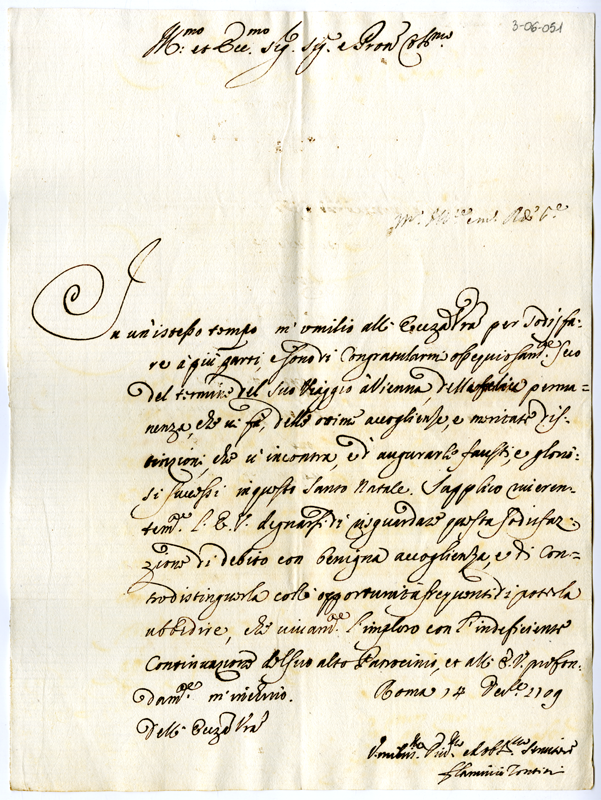 3-06-051
Ill.mo et Ecc.mo Sig. Sig. e Pron Col.mo
In un'istesso tempo m'umilio all' Ecc.za Vra per sodisfa-
re à più parti, e sono di congratularmi ossequiosam.te seco
del termine del suo viaggio à Vienna, della felice perma=
nenza, che vi fà, delle ottime accoglienze, e meritate dis-
tinzioni, che vi incontra, e d'augurarle fausti, e glorio-
si successi in questo Santo Natale. Supplico riveren-
tem.te l'E.V. degnarsi di risguardare questa sodisfaz-
zione di debito con benigna accoglienza, e di con-
trodistinguerla colle opportunità frequenti di poterla
ubbidire, che vivam.te l'imploro con l'indeficiente
continuazione del suo alto Patrocinio, et all' E.V. profon-
dam.te m'inchino. Roma 14 Dec.bre 1709
Dell' Ecc.za Vra
Umiliss.o Servitore
Flaminio